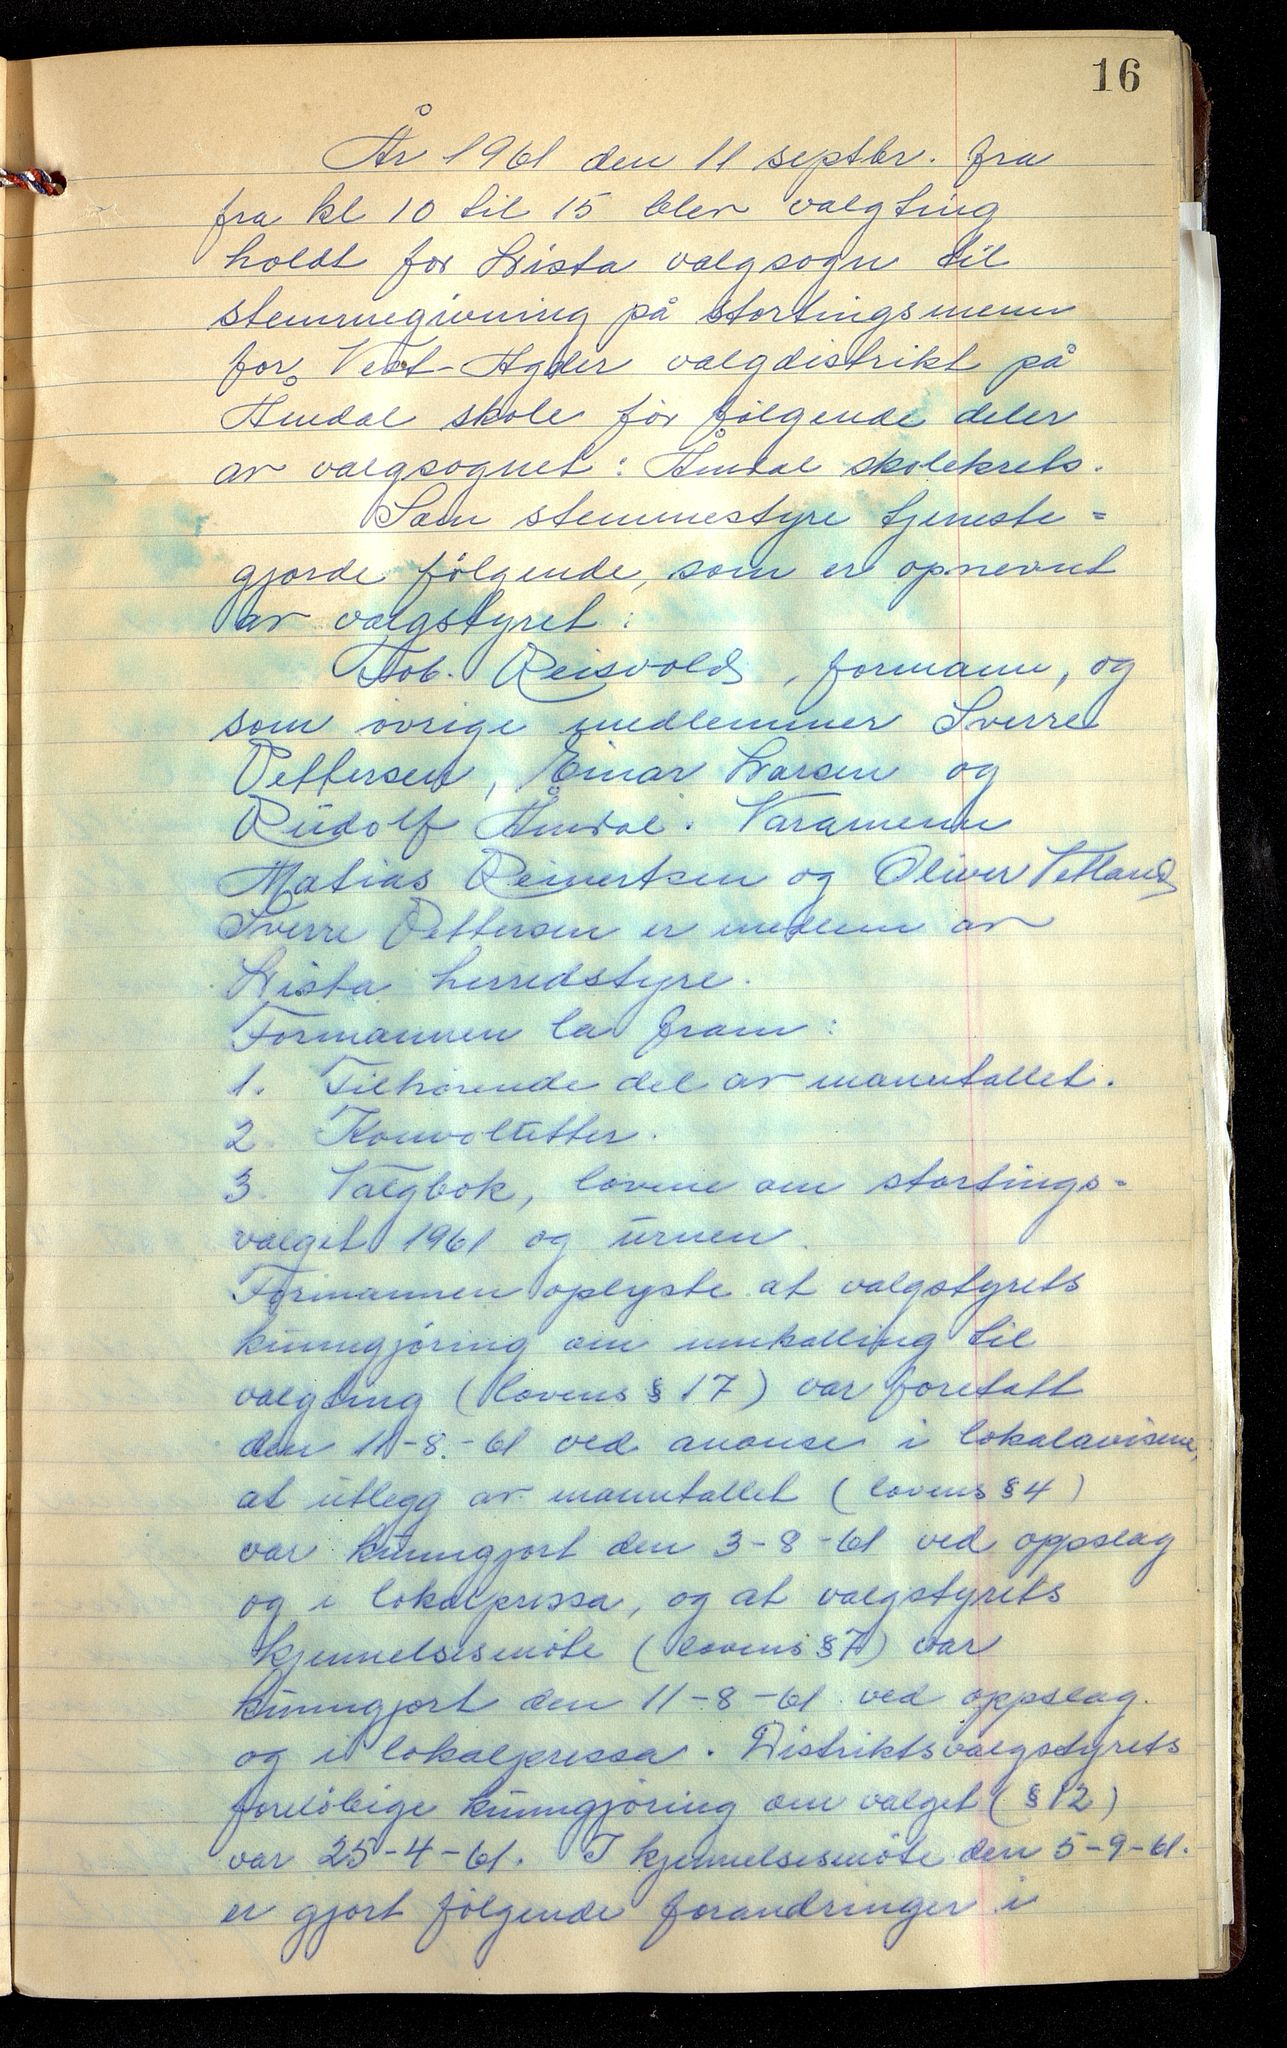 16
År 1961 den 11 septbr. fra
fra kl 10 til 15 blev valgting
holdt for Lista valgsogn til
stemmegivning på stortingsmenn
for Vest-Agder valgdistrikt på
Åmdal skole for følgende deler
av valgsognet: Åmdal skolekrets.
Som stemmestyre tjeneste=
gjorde følgende, som er opnevnt
av valgstyret:
Tob. Reisvold, formann, og
som øvrige medlemmer Sverre
Pettersen, Einar Larsen og
Rudolf Åmdal. Varamenn
Matias Reinertsen og Oliver Vetland
Sverre Pettersen er medlem av
Lista herredstyre.
Formannen la fram:
1. Tilhørende del av manntallet.
2. Konvolutter.
3. Valgbok, lovene om stortings-
valget 1961 og urnen.
Formannen oplyste at valgstyrets
kunngjøring om innkalling til
valgting (lovens § 17) var foretatt
den 11-8-61 ved anonse i lokalavisene,
at utlegg av manntallet (lovens § 4)
var kunngjort den 3-8-61 ved oppslag
og i lokalpressa, og at valgstyrets
kjennelsesmøte (lovens § 7) var
kunngjort den 11-8-61 ved oppslag
og i lokalpressa. Distriktsvalgstyrets
foreløbige kunngjøring om valget (§ 12)
var 25-4-61. I kjennelsesmøte den 5-9-61.
er gjort følgende forandringer i